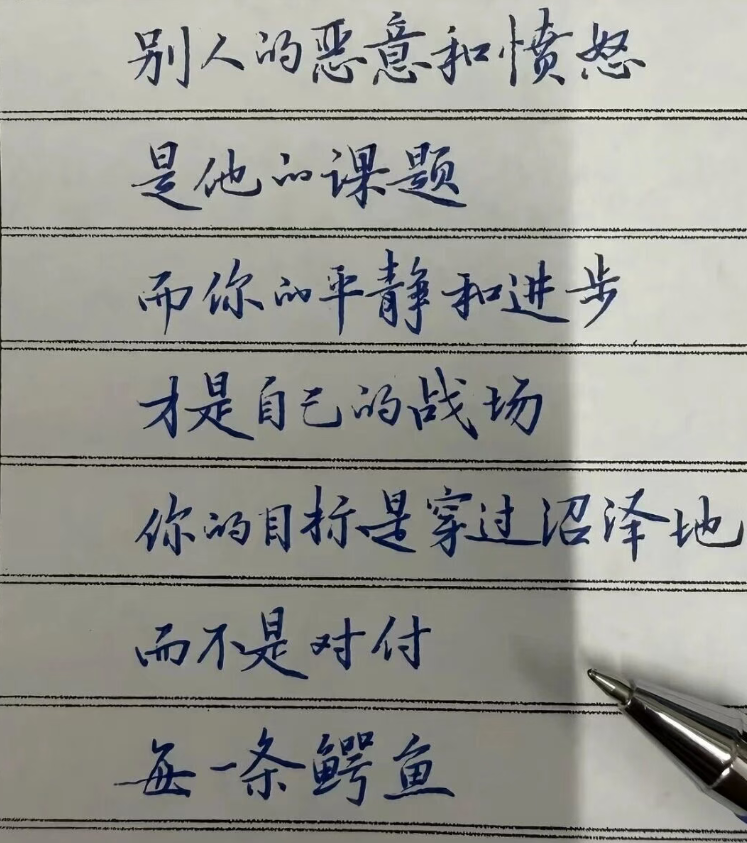 别人的恶意和愤怒
是他的课题
而你的平静和进步
才是自己的战场
你的目标是穿过沼泽地
而不是对付
每一条鳄鱼